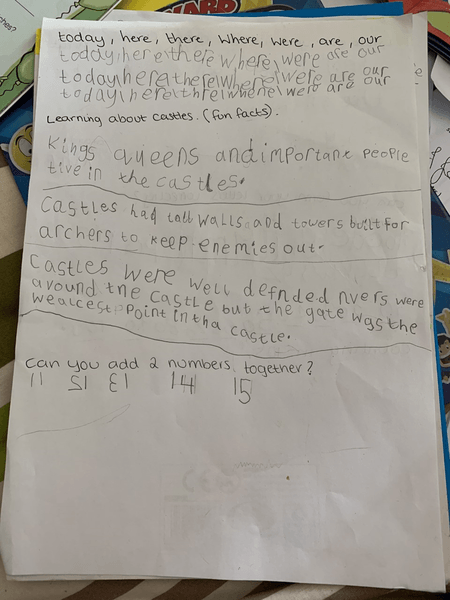 today, here, there, where, were, are, our
today, here there where were are our
today, here, there, where, were are our
today, here, thre, where, were are our
Learning about castles. (fun facts).
Kings queens and important people
live in the castles.
Castles had tall walls and towers built for
archers to keep enemies out.
Castles were well defnded rivers were
around the castle but the gate was the
wealcest point in tha castle.
can you add 2 numbers together?
11 12 13 14 15